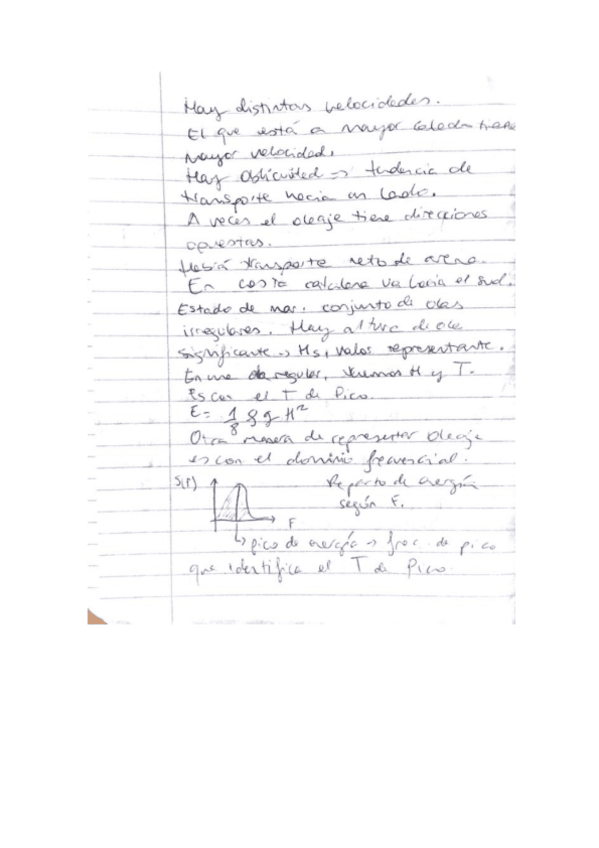 Hay distintas velocidades.
El que está a mayor calado tiene
mayor velocidad.
Hay oblicuidad → tendencia de
transporte hacia un lado.
A veces el oleaje tiene direcciones
opuestas.
Habrá transporte neto de arena.
En costa catalana va hacia el sud.
Estado de mar: conjunto de olas
irregulares. Hay altura de ola
significante → Hs, valor representante.
En una ola regular, tenemos H y T.
Es con el T de Pico.
E = 1/8 ρ g H²
Otra manera de representar oleaje
es con el dominio frecuencial.
S(f)
Reparto de energía
según F.
F
↳ pico de energía → frec. de pico
que identifica el T de Pico.